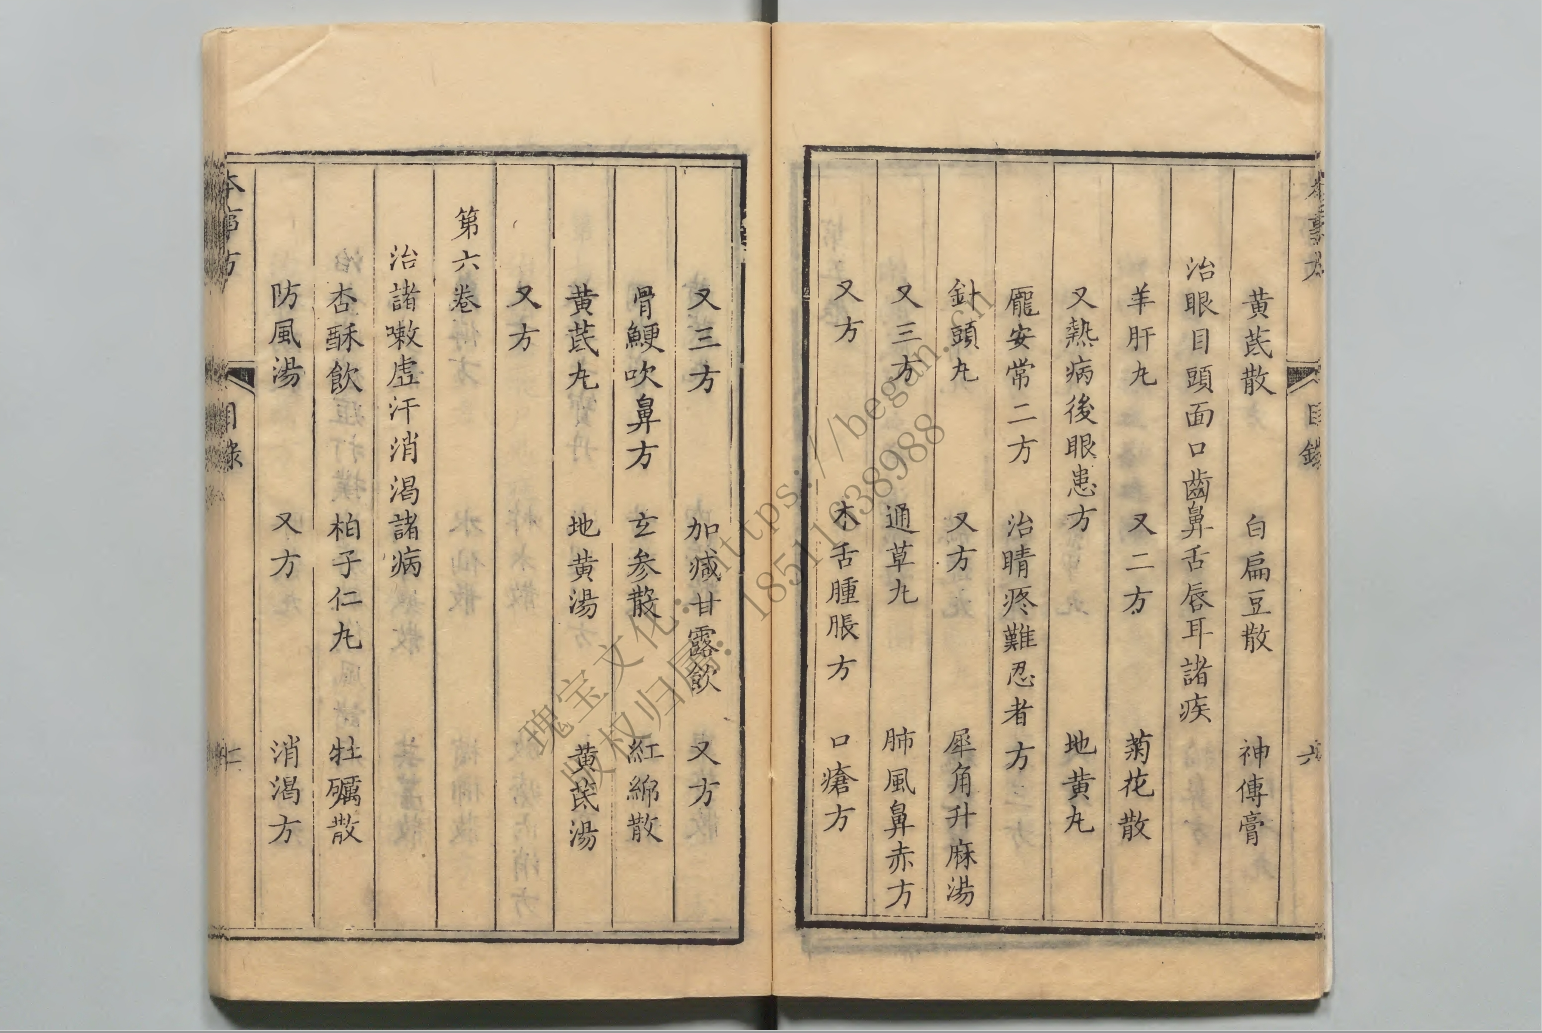 黃芪散 白扁豆散 神傳膏
治眼目頭面口齒鼻舌唇耳諸疾
羊肝丸 又二方 菊花散
又熱病後眼患方 地黃丸
龐安常二方 治睛疼難忍者方
針頭丸 又方 犀角升麻湯
又三方 通草丸 肺風鼻赤方
又方 木舌腫脹方 口瘡方
目錄
六
又三方 加减甘露飲 又方
骨鯁吹鼻方 玄参散 紅綿散
黃芪丸 地黃湯 黃芪湯
又方
第六卷
治諸嗽虛汗消渴諸病
杏酥飲 柏子仁丸 牡礪散
防風湯 又方 消渴方
本事方
目錄
https://began.cn
瑰宝文化:
18511038988
版权归属: